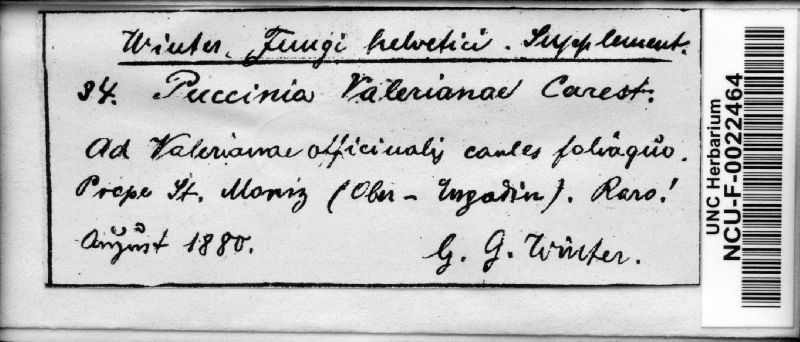 Winter, Fungi helvetici. Supplement.
34. Puccinia Valerianae Carest.
Ad Valerianae officinalis caules foliaque.
Prope St. Moriz (Ober-Engadin). Raro!
August 1880.
G. G. Winter.
UNC Herbarium
NCU-F-0022464